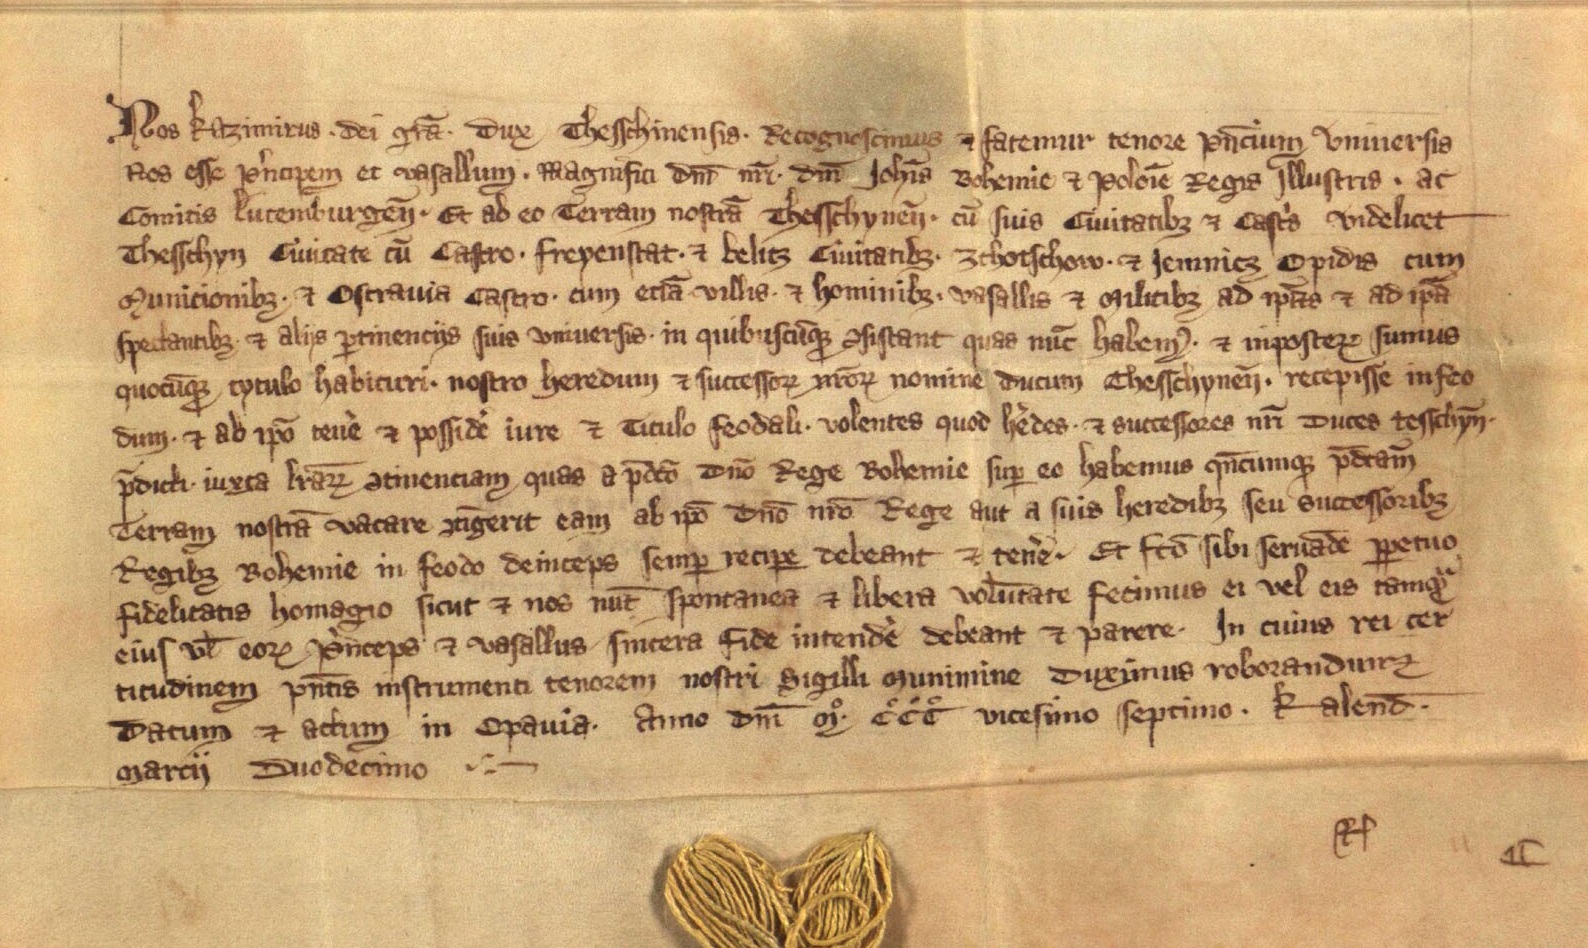 Nos Kazimirus. dei gr̄a. Dux Thesschinensis. Recognoscimus & fatemur tenore pn̄cium Vniuersis
Nos esse pⁱncipem et vasallum. Magnifici Dn̄i nr̄i. dn̄i Joh̄is Bohemie & Polōie Regis Jllustris. ac
Comitis Lucemburgen̄. Et ab eo Terram nostrā Thesschynen̄. cū suis Ciuitatibꝫ & Castⁱs videlicet
Thesschyn Ciuitate cū Castro. Freyenstat. & Belitz Ciuitatibꝫ. Zchotschow. & Jemnicz Opidis cum
Municionibꝫ. & Ostrauia Castro. cum eciā villis. & hominibꝫ. vasallis & Militibꝫ ad ip̄as & ad ip̄a
spectantibꝫ. & alijs ꝑtinencijs suis vniuersis. in quibuscūqꝫ ꝯsistant quas nūc habemꝰ. & inposteꝝ sumus
quocūqꝫ tytulo habituri. nostro heredum & successoꝝ nr̄oꝝ nomine ducum Thesschynen̄. recepisse in feo
dum. & ab ip̄o tenēˀ & possidēˀ iure & Titulo feodali. volentes quod hˀedes. & successores nr̄i Duces tesschyn̄.
p̄dicti. iuxta lr̄aꝝ ꝯtinenciam quas a p̄dc̄o Dn̄o Rege Bohemie suꝑ eo habemus qn̄cumqꝫ p̄dc̄am
Terram nostrā vacare ꝯtīgerit eam ab ip̄o Dn̄o nr̄o Rege aut a suis heredibꝫ seu successoribꝫ
Regibꝫ Bohemie in feodo deinceps semꝑ reciꝑe debeant & tenēˀ. Et fc̄o sibi seruādˀe ꝑpetuo
fidelitatis homagio sicut & nos nūc spontanea & libera volūtate fecimus ei vel eis tamqᵃ
eius vl̄ eoꝝ pⁱnceps & vasallus sincera fide intendēˀ debeant & parere. In cuius rei cer
titudinem pn̄tis instrumenti tenorem nostri Sigilli Munimine Duximus roborandum
Datum & actum in Opauia. Anno Dn̄i M°. C°C°C° vicesimo septimo. Kalend̄.
Marcij Duodecimo